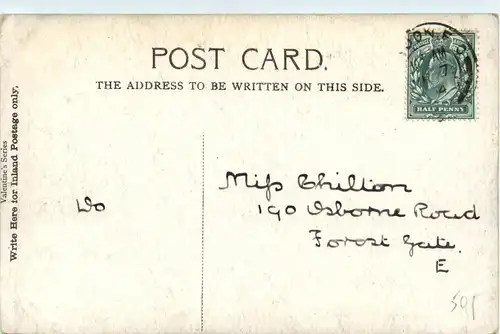 POST CARD.
THE ADDRESS TO BE WRITTEN ON THIS SIDE.
HALF PENNY
Valentine's Series
Write Here for Inland Postage only,
Miss Chilton
190 Osborne Road
Forest Gate.
E